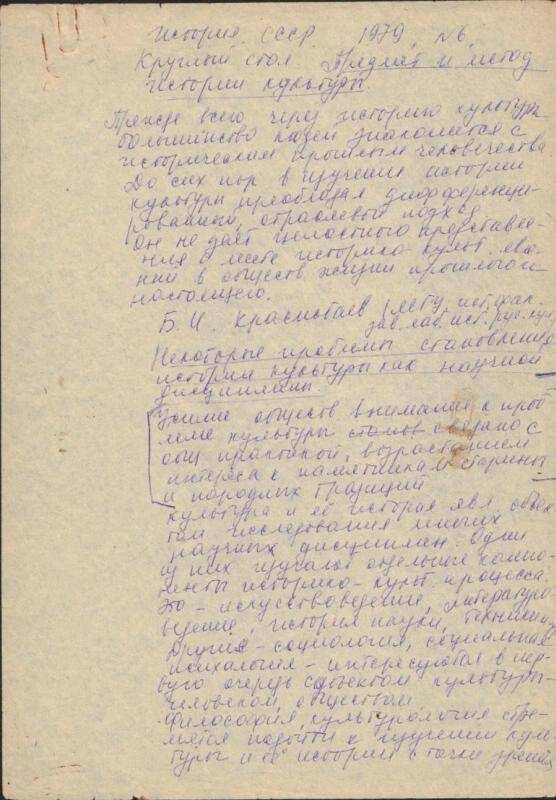 История СССР 1979, №6
Круглый стол. Предмет и метод
истории культуры.
Прежде всего через историю культуры
большинство людей знакомятся с
историческим прошлым человечества.
До сих пор в изучении истории
культуры преобладал дифференци-
рованный, отраслевой подход
он не дает целостного представле-
ния о месте историко-культ. явле-
ний в обществ жизни прошлого и
настоящего.
Б. И. Краснобаев (МГУ, ист. фак.
зав. лаб. ист. рус. культ)
Некоторые проблемы становления
истории культуры как научной
дисциплины.
обществ внимания к проб
леме культуры связано с
общ практикой, возрастанием
интереса к памятникам старины
и народных традиций
Культура и её история явл. объек
том исследования многих
научных дисциплин. Одни
из них изучают отдельные компо-
ненты историко-культ. процесса.
Это - искусствоведение, литературо
ведение, история науки, техники и
другие - социология, социальная
психология - интересуются в пер-
вую очередь субъектом культуры-
человеком, обществом
Философия, культурология стре-
мятся подойти к изучению куль
туры и её истории с точки зрения